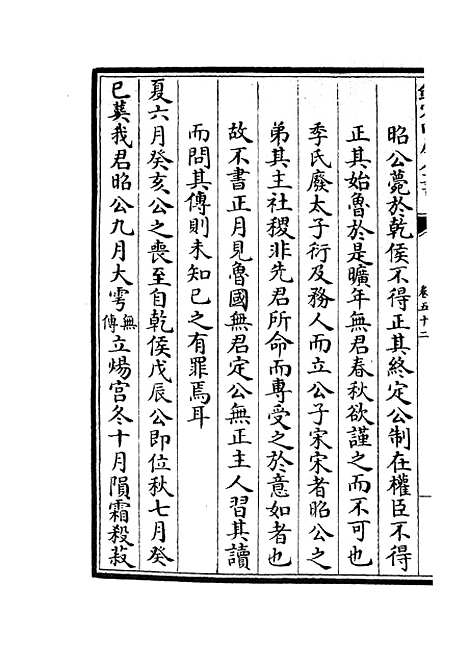 卷五十二
昭公薨於乾侯不得正其終定公制在權臣不得
正其始魯於是曠年無君春秋欲謹之而不可也
季氏廢太子衍及務人而立公子宋宋者昭公之
弟其主社稷非先君所命而專受之於意如者也
故不書正月見魯國無君定公無正主人習其讀
而問其傳則未知已之有罪焉耳
夏六月癸亥公之喪至自乾侯戊辰公即位秋七月癸
巳葬我君昭公九月大雩無傳立煬宮冬十月隕霜殺菽